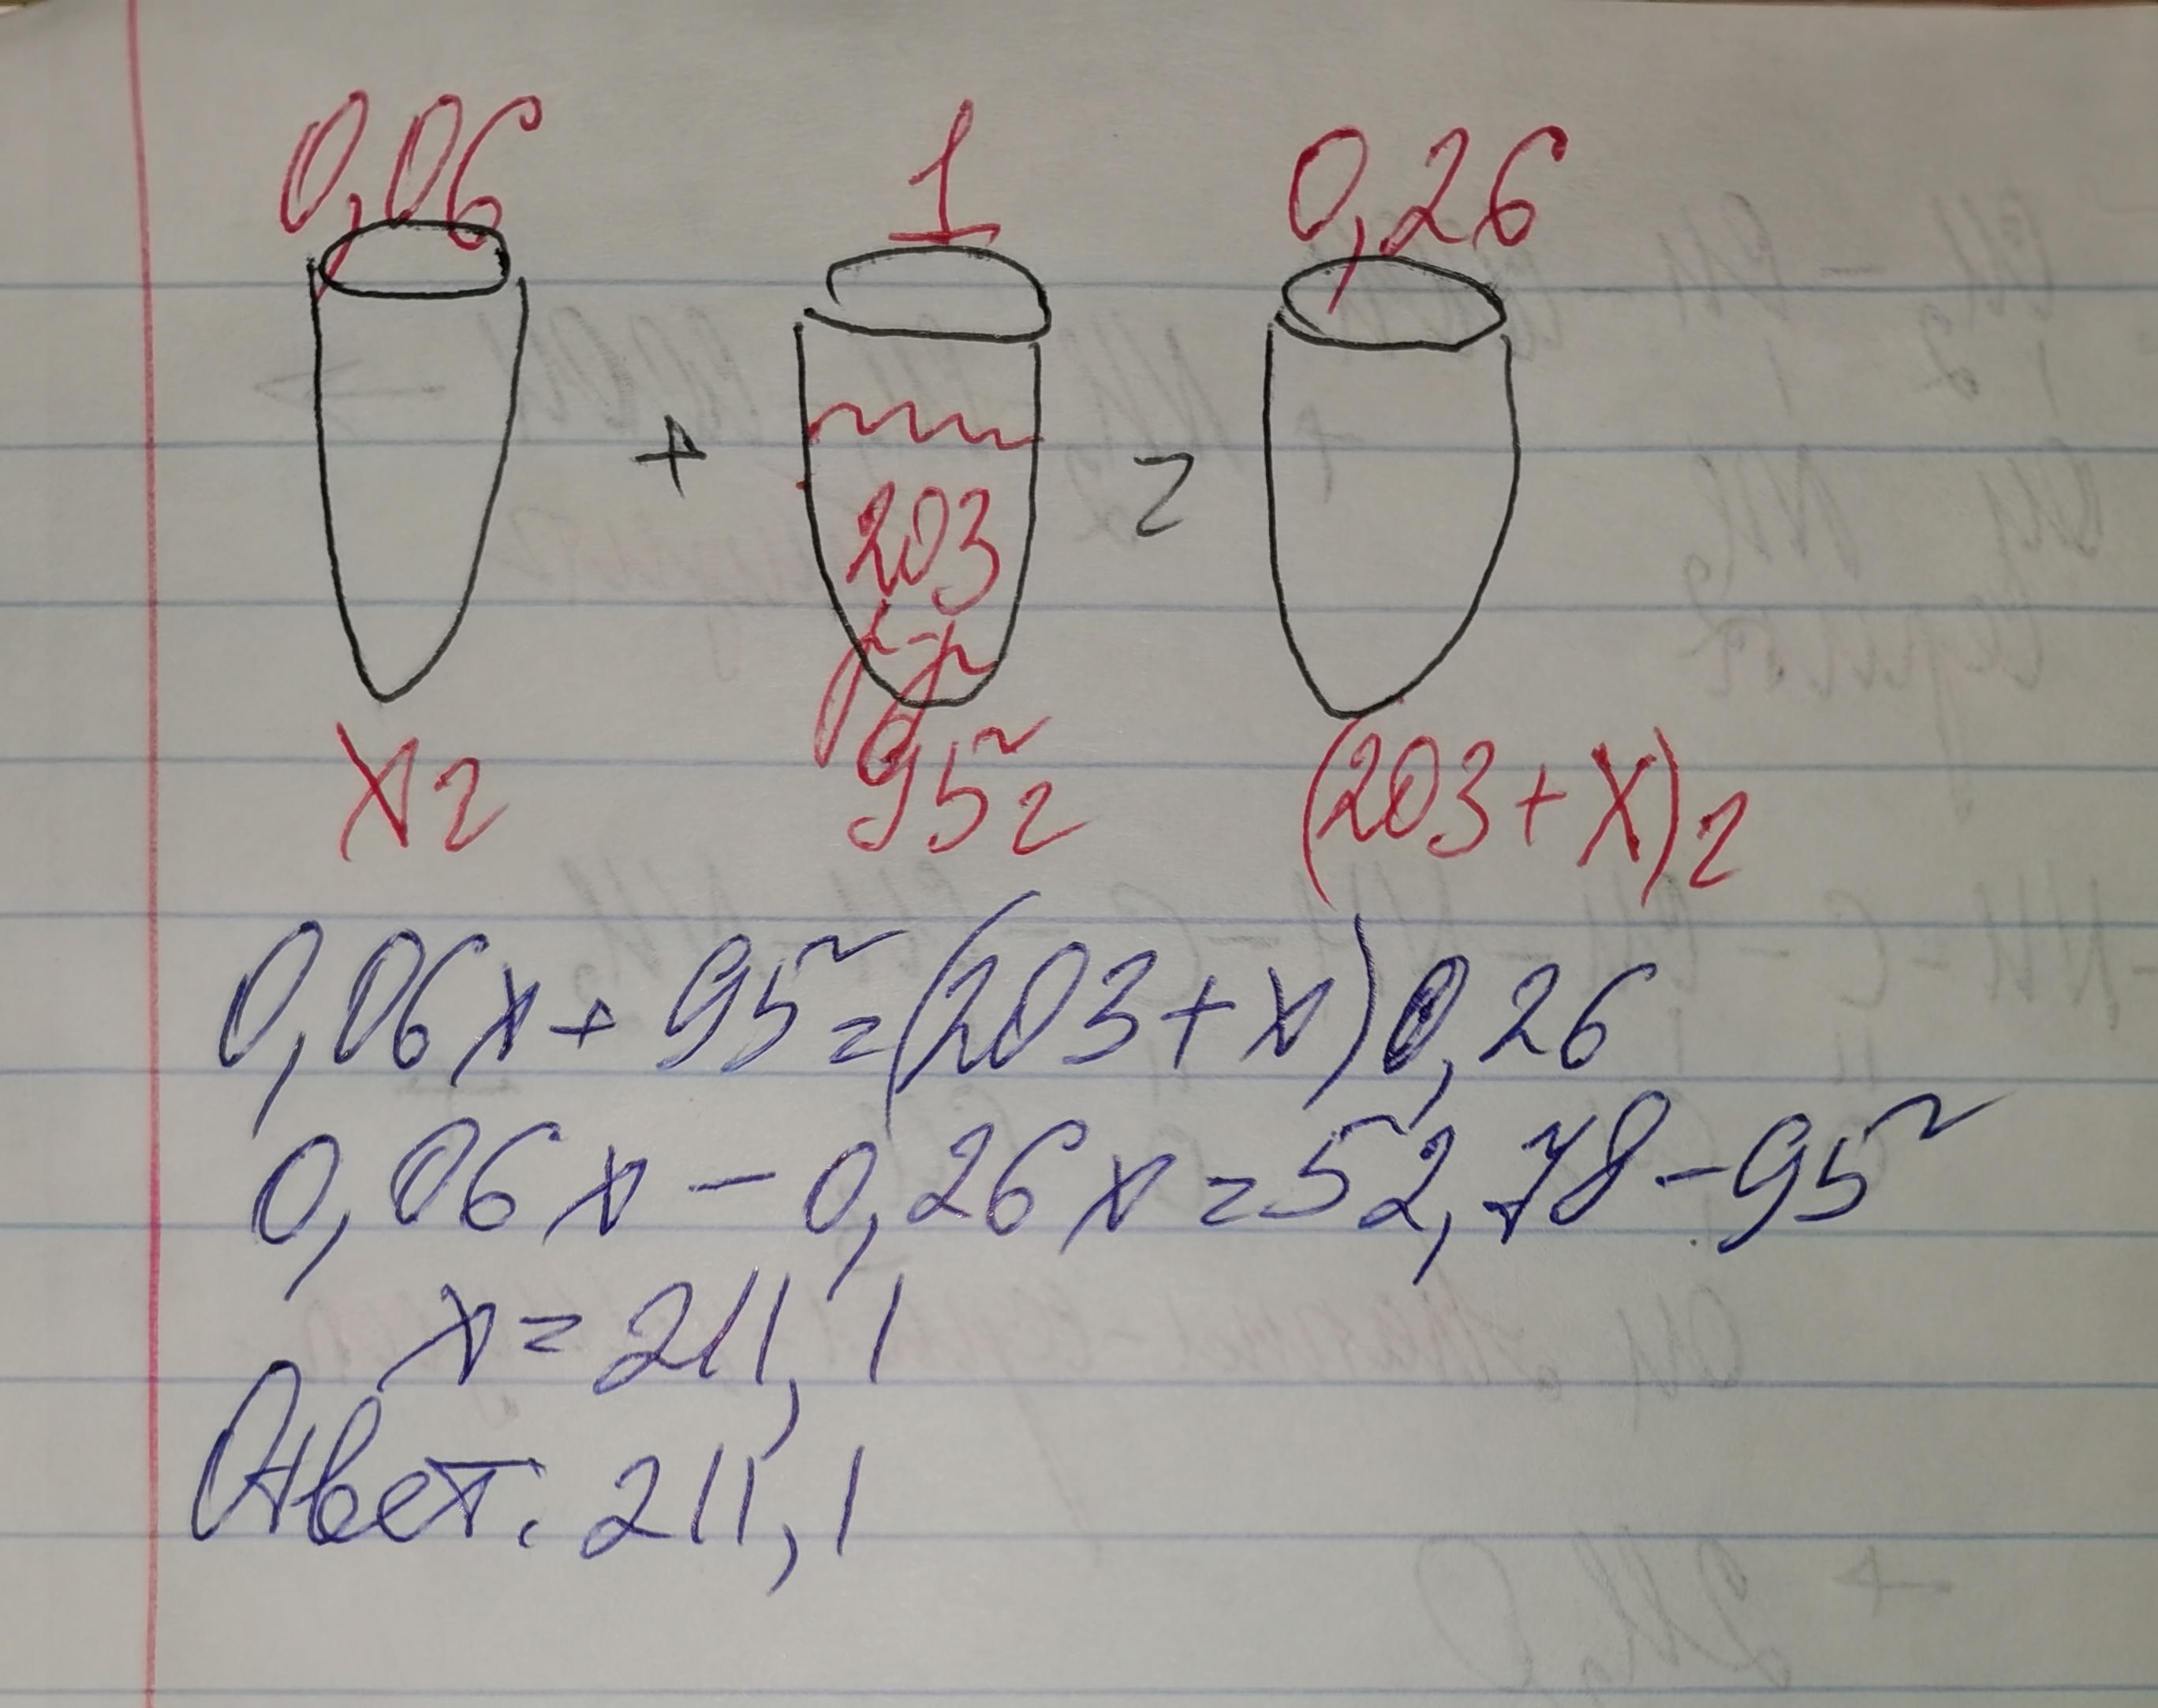 0,06 1 0,26
+ =
203
р-р
хг 95г (203+х)г
0,06х+95=(203+х)0,26
0,06х-0,26х=52,78-95
х=211,1
Ответ: 211,1